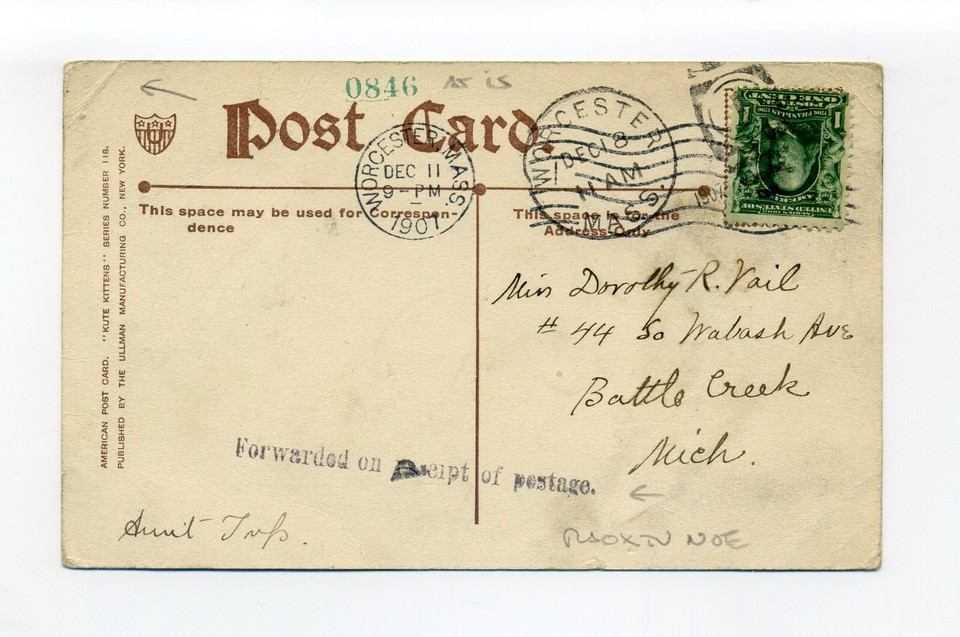 0846 AS IS
Post Card.
WORCESTER, MASS.
DEC 11
9-PM
1907
WORCESTER
DEC 18
AM
MASS.
ONE CENT 1
This space may be used for Correspon-
dence
This space is for the
Address Only
AMERICAN POST CARD. "KUTE KITTENS" SERIES NUMBER 118.
PUBLISHED BY THE ULLMAN MANUFACTURING CO., NEW YORK.
Miss Dorothy R. Vail
# 44 So Wabash Ave
Battle Creek
Mich.
Forwarded on receipt of postage.
Aunt
NOE